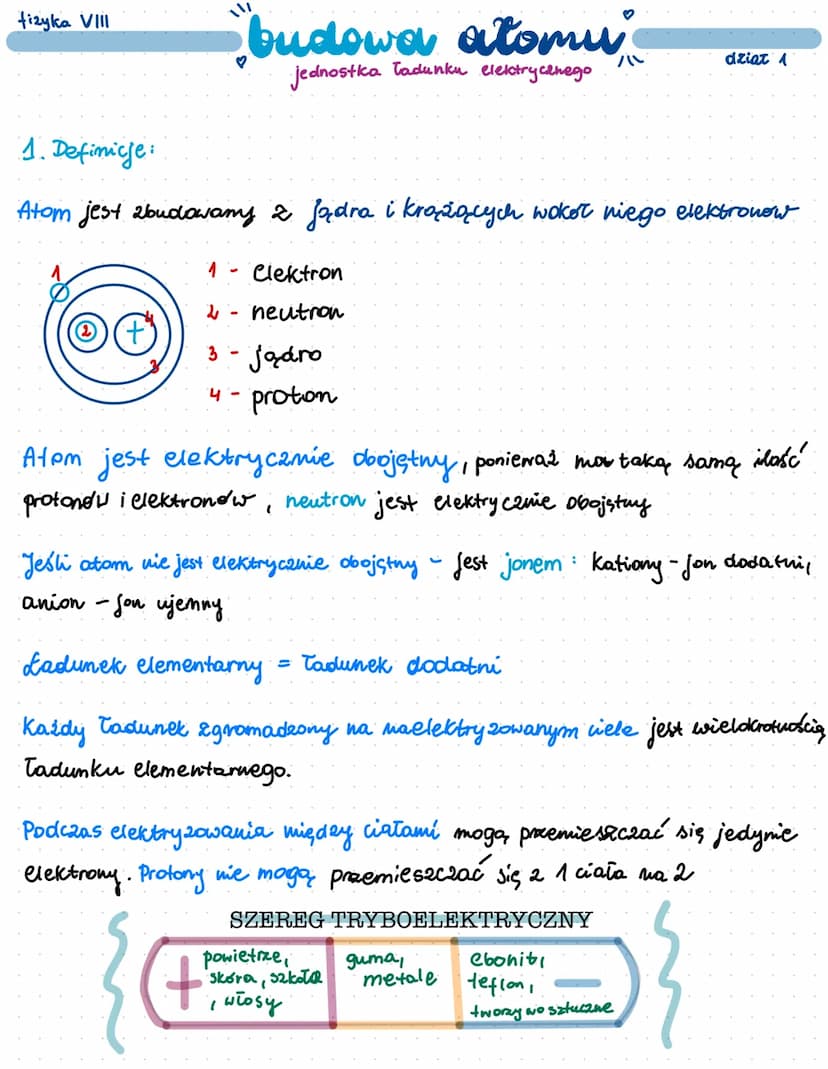 fizyka VIII
budowa atomu
dział 1
jednostka ładunku elektrycznego
1. Definicje:
Atom jest zbudowany z jądra i krążących wokół niego elektronów
1
2
+
4
3
1 - elektron
2 - neutron
3 - jądro
4 - proton
Atom jest elektrycznie obojętny, ponieważ ma taką samą ilość
protonów i elektronów, neutron jest elektrycznie obojętny
Jeśli atom nie jest elektrycznie obojętny - jest jonem: kationy - jon dodatni,
anion - jon ujemny
Ładunek elementarny = ładunek dodatni
Każdy ładunek zgromadzony na naelektryzowanym ciele jest wielokrotnością
ładunku elementarnego.
Podczas elektryzowania między ciałami mogą przemieszczać się jedynie
elektrony. Protony nie mogą przemieszczać się z 1 ciała na 2
SZEREG TRYBOELEKTRYCZNY
+ powietrze, skóra, szkoła, włosy
guma, metale
ebonit, teflon, tworzywo sztuczne -